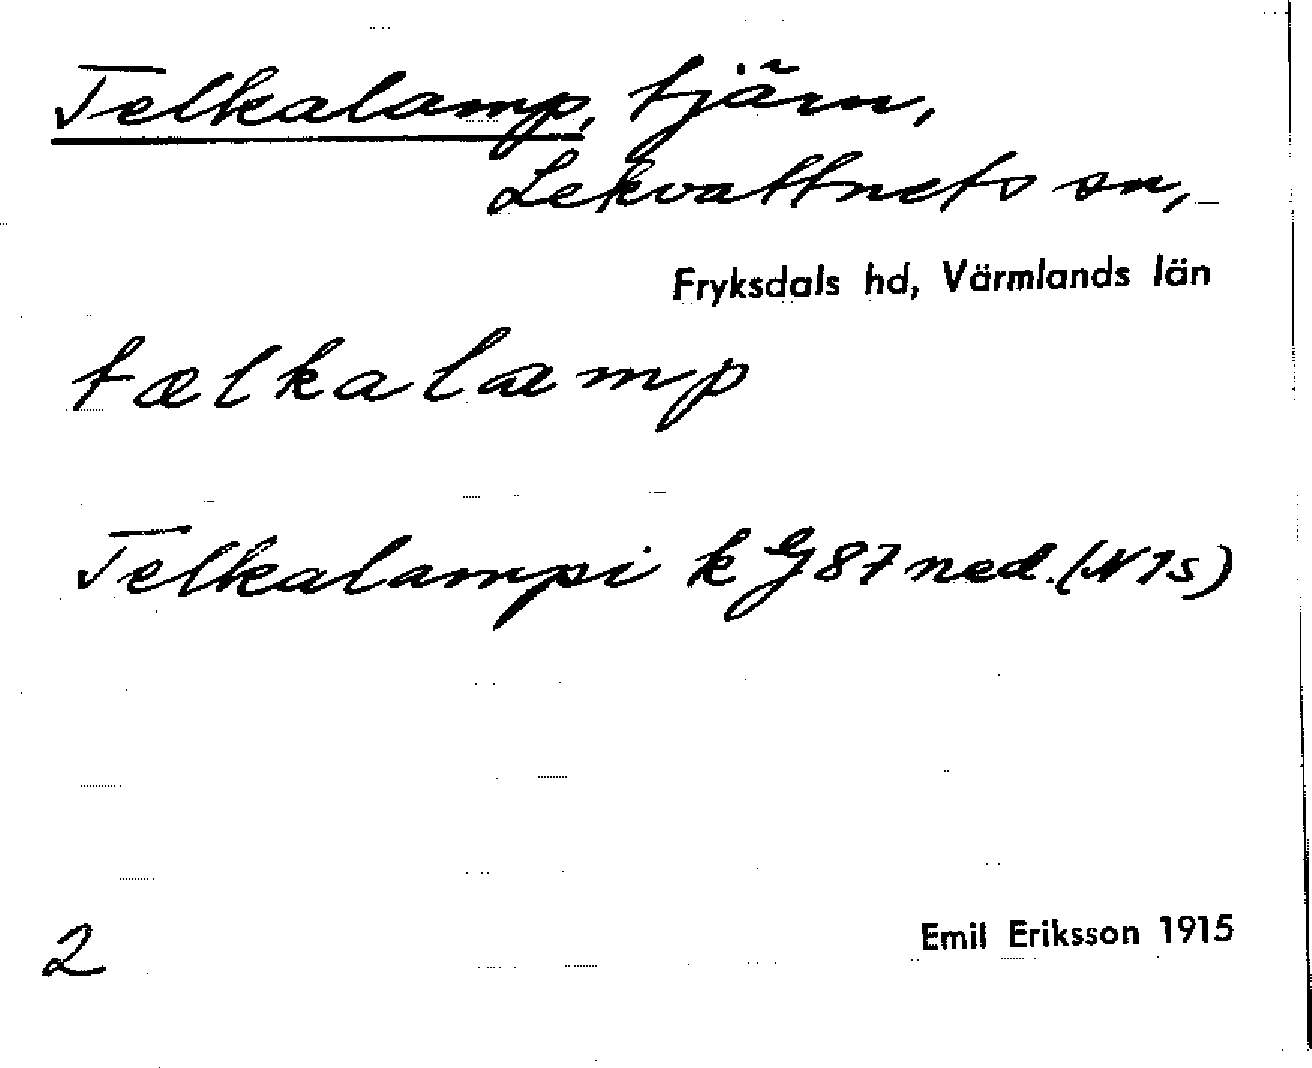 Telkalamp, tjärn,
Lekvattnets sn,
Fryksdals hd, Värmlands län
tælkalamp
Telkalampi k G 87 ned. (N Is)
2
Emil Eriksson 1915